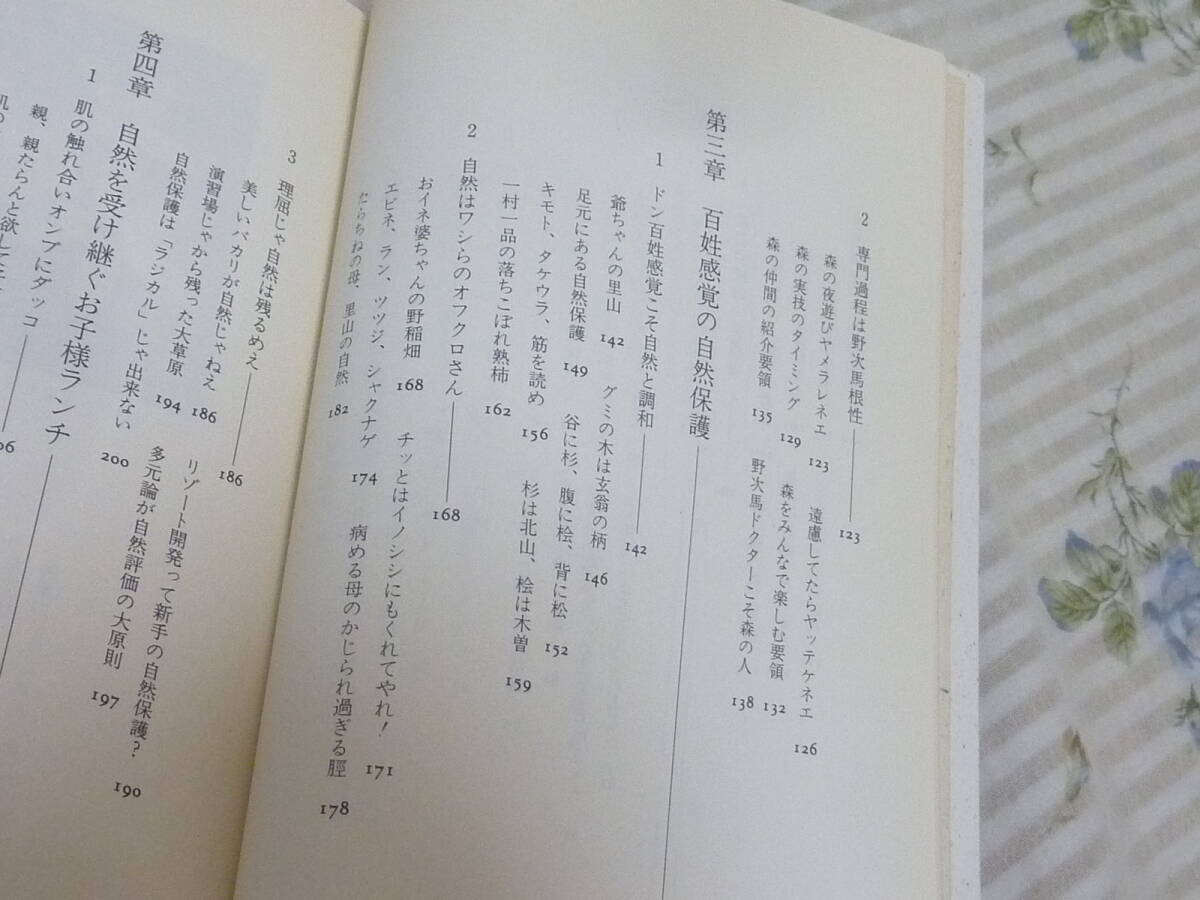 2 専門過程は野次馬根性――123
森の夜遊びヤメラレネエ 123 遠慮してたらヤッテケネエ 126
森の実技のタイミング 129 森をみんなで楽しむ要領 132
森の仲間の紹介要領 135 野次馬ドクターこそ森の人 138
第三章 百姓感覚の自然保護――
1 ドン百姓感覚こそ自然と調和――142
爺ちゃんの里山 142 グミの木は玄翁の柄 146
足元にある自然保護 149 谷に杉、腹に桧、背に松 152
キモト、タケウラ、筋を読め 156 杉は北山、桧は木曽 159
一村一品の落ちこぼれ熟柿 162
2 自然はワシらのオフクロさん――168
おイネ婆ちゃんの野稲畑 168 チッとはイノシシにもくれてやれ! 171
エビネ、ラン、ツツジ、シャクナゲ 174 病める母のかじられ過ぎる脛 178
たらちねの母、里山の自然 182
3 理屈じゃ自然は残るめえ――186
美しいバカリが自然じゃねえ 186 リゾート開発って新手の自然保護? 190
演習場じゃから残った大草原 194 多元論が自然評価の大原則 197
自然保護は「ラジカル」じゃ出来ない 200
第四章 自然を受け継ぐお子様ランチ――
1 肌の触れ合いオンブにダッコ――
親、親たらんと欲して